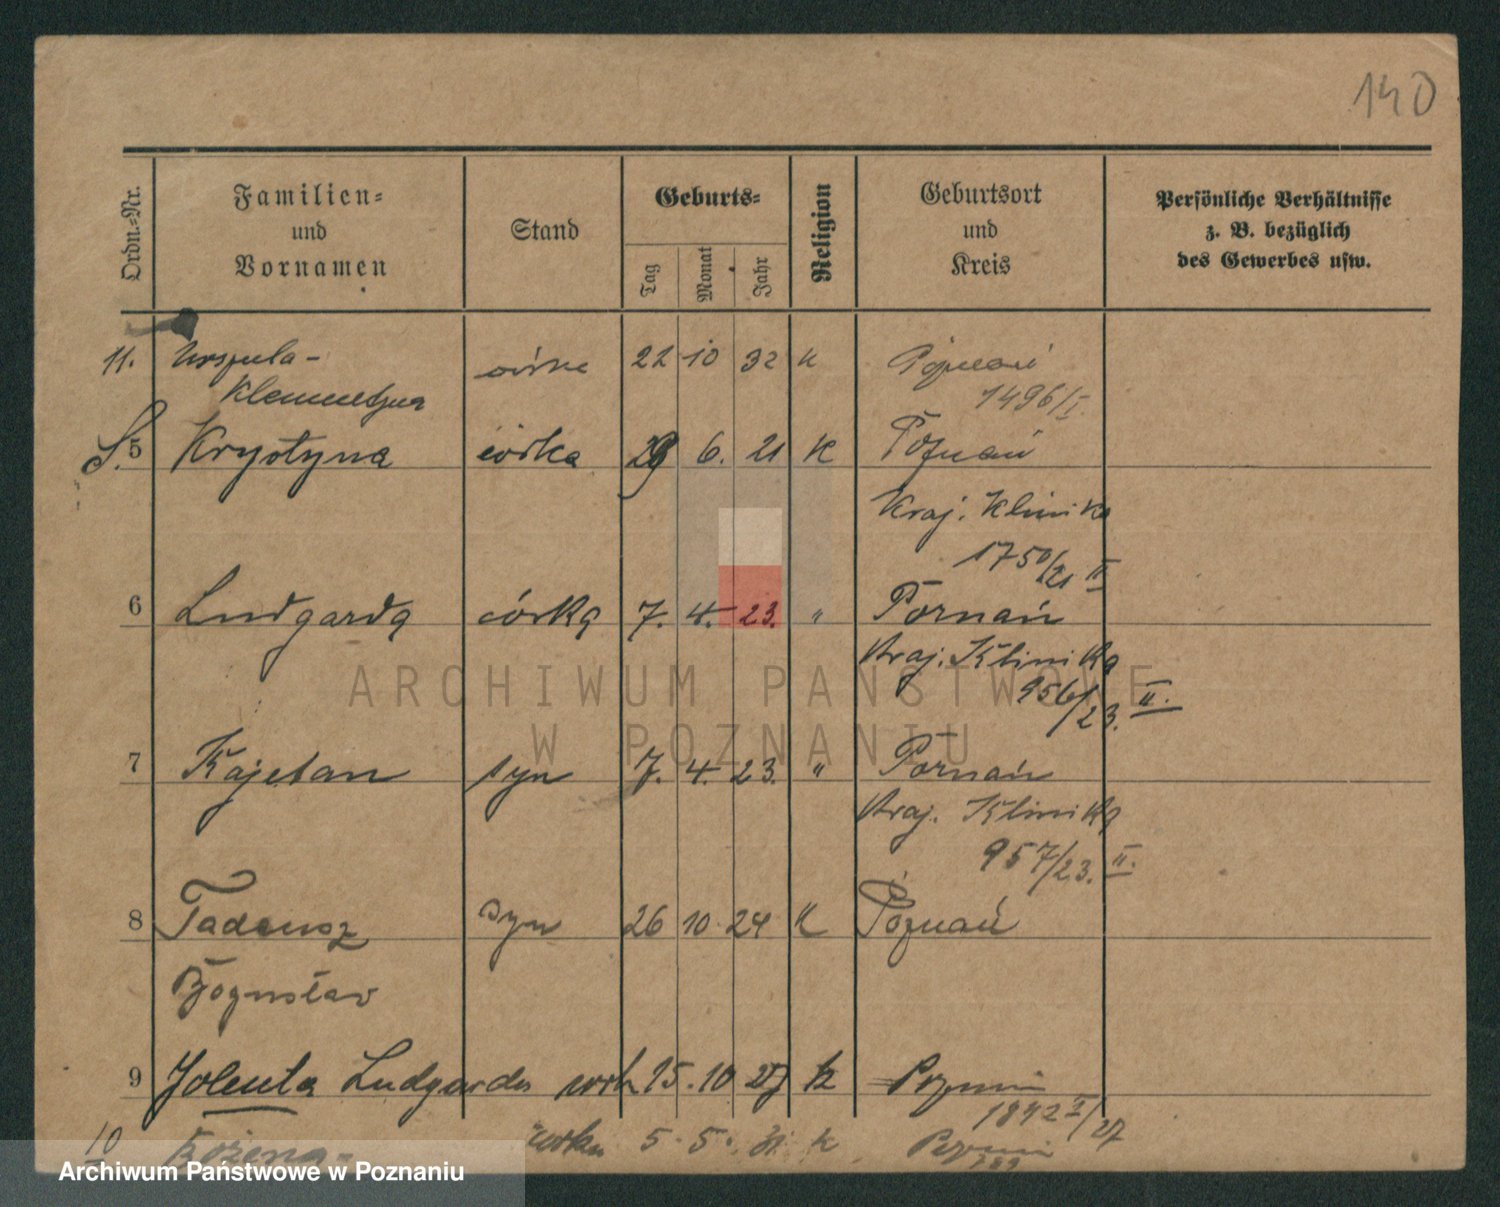 140
Ordn.-Nr.
Familien-
und
Vornamen
Stand
Geburts-
Tag
Monat
Jahr
Religion
Geburtsort
und
Kreis
Persönliche Verhältnisse
z. B. bezüglich
des Gewerbes usw.
11. Urszula- córka 22 10 32 K Poznań
Klementyna 1496/I.
S. 5 Krystyna córka 29 6. 21 K Poznań
Kraj. Klinika
1750/21 II
6 Ludgarda córka 7. 4. 23. " Poznań
Kraj. Klinika
956/23. II.
7 Kajetan syn 7. 4. 23. " Poznań
Kraj. Klinika
957/23. II.
8 Tadeusz syn 26 10 24 K Poznań
Bogusław
9 Jolenta Ludgarda córk 15. 10 27 K Poznań
1842 I/27
10 Bożena- córka 5. 5. 31. K Poznań
ARCHIWUM PAŃSTWOWE
W POZNANIU
Archiwum Państwowe w Poznaniu